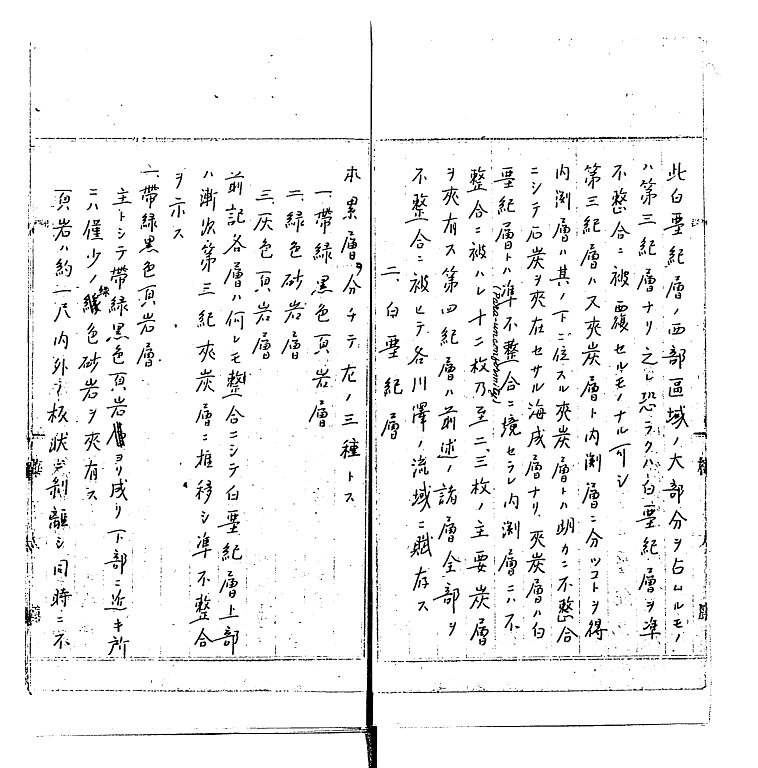 此白堊紀層ノ西部區域ノ大部分ヲ占ムルモノ
ハ第三紀層ナリ之レ恐ラクハ白堊紀層ヲ準
不整合ニ被覆セルモノナル可シ
第三紀層ハス夾炭層ト内渕層ニ分ツコトヲ得
内渕層ハ其ノ下ニ位スル夾炭層トハ明カニ不整合
ニシテ石炭ヲ夾在セサル海成層ナリ夾炭層ハ白
堊紀層トハ準不整合(Para-unconformity)ニ境セラレ内渕層ニハ不
整合ニ被ハレ十二枚乃至二、三枚ノ主要炭層
ヲ夾有ス第四紀層ハ前述ノ諸層全部ヲ
不整合ニ被ヒテ各川澤ノ流域ニ賦存ス
二、白堊紀層
本累層ヲ分チテ左ノ三種トス
一、帶緑黒色頁岩層
二、緑色砂岩層
三、灰色頁岩層
前記各層ハ何レモ整合ニシテ白堊紀層上部
ハ漸次第三紀夾炭層ニ推移シ準不整合
ヲ示ス
一、帶緑黒色頁岩層
主トシテ帶緑黒色頁岩ヨリ成リ下部ニ近キ所
ニハ僅少ノ緑色砂岩ヲ夾有ス
頁岩ハ約一尺内外ニ板状ニ剥離シ同時ニ不